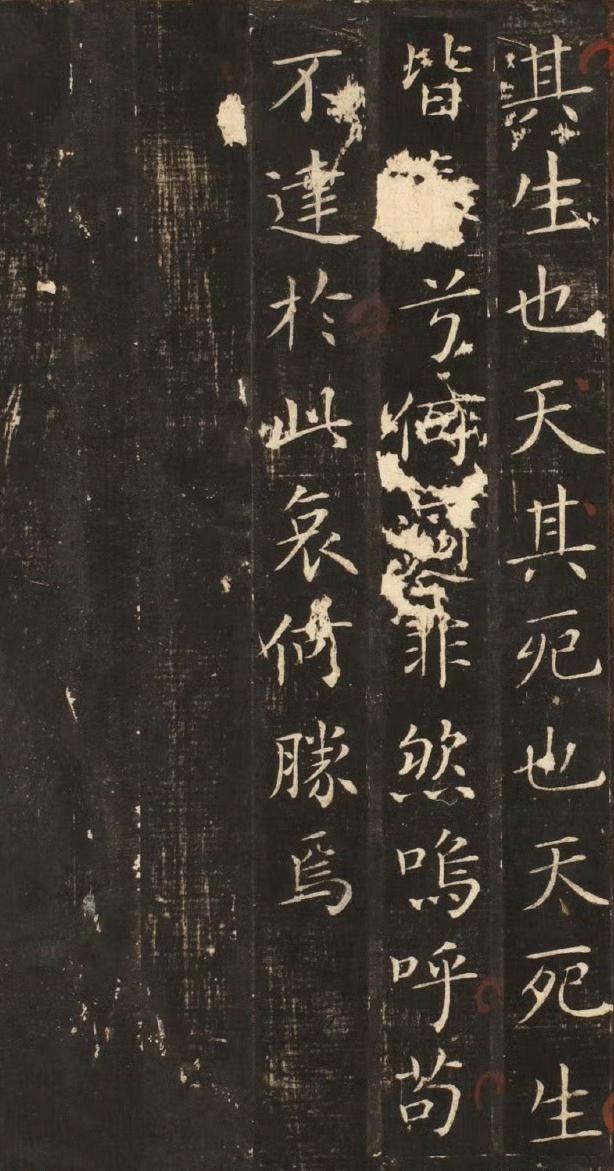 其生也天其死也天死生
皆兮何罪然嗚呼苟
不達於此哀勝焉